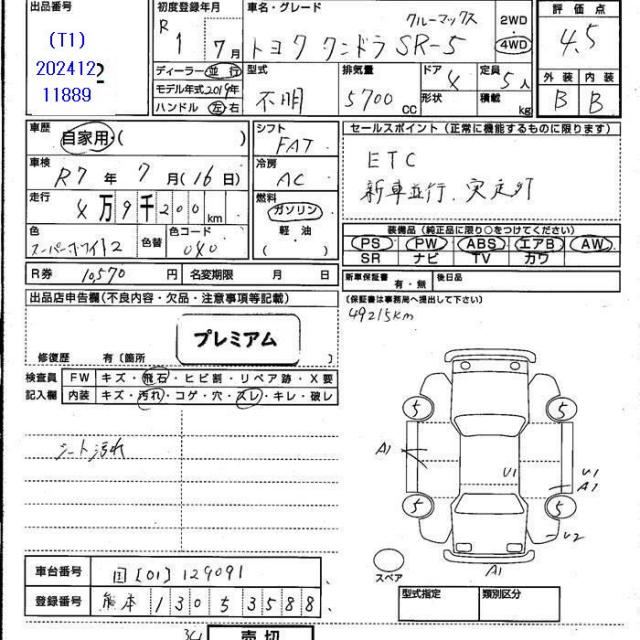 出品番号
(T1)
202412
11889
2
初度登録年月
R 1 7月
車名・グレード
クルーマックス
トヨタ タンドラ SR-5
2WD
4WD
評価点
4.5
外装 内装
B B
ディーラー 並行
モデル年式 2019年
ハンドル 左 右
型式
不明
排気量
5700 cc
ドア 4
形状
定員 5人
積載 kg
車歴
自家用・( )
シフト
FAT
セールスポイント(正常に機能するものに限ります)
ETC
新車並行、実走行
車検
R7年 7月(16日)
冷房
AC
走行
4万9千200km
燃料
ガソリン
軽油
( )
色
スーパーホワイト2
色替
色コード
040
装備品(純正品に限り○をつけてください)
PS PW ABS エアB AW
SR ナビ TV カワ
R券 10,570円 名変期限 月 日
新車保証書 有・無 後日品
(保証書は事務局へ提出して下さい)
49215km
出品店申告欄(不良内容・欠品・注意事項等記載)
プレミアム
修復歴 有〔箇所 〕
検査員
記入欄
FW キズ・飛石・ヒビ割・リペア跡・X要
内装 キズ・汚れ・コゲ・穴・スレ・キレ・破レ
シート汚れ
5 5
A1
U1
U1
A1
5 5
U2
A1
スペア
車台番号 国[01]129091
登録番号 熊本 130 ち 3588
型式指定 類別区分
34
売切